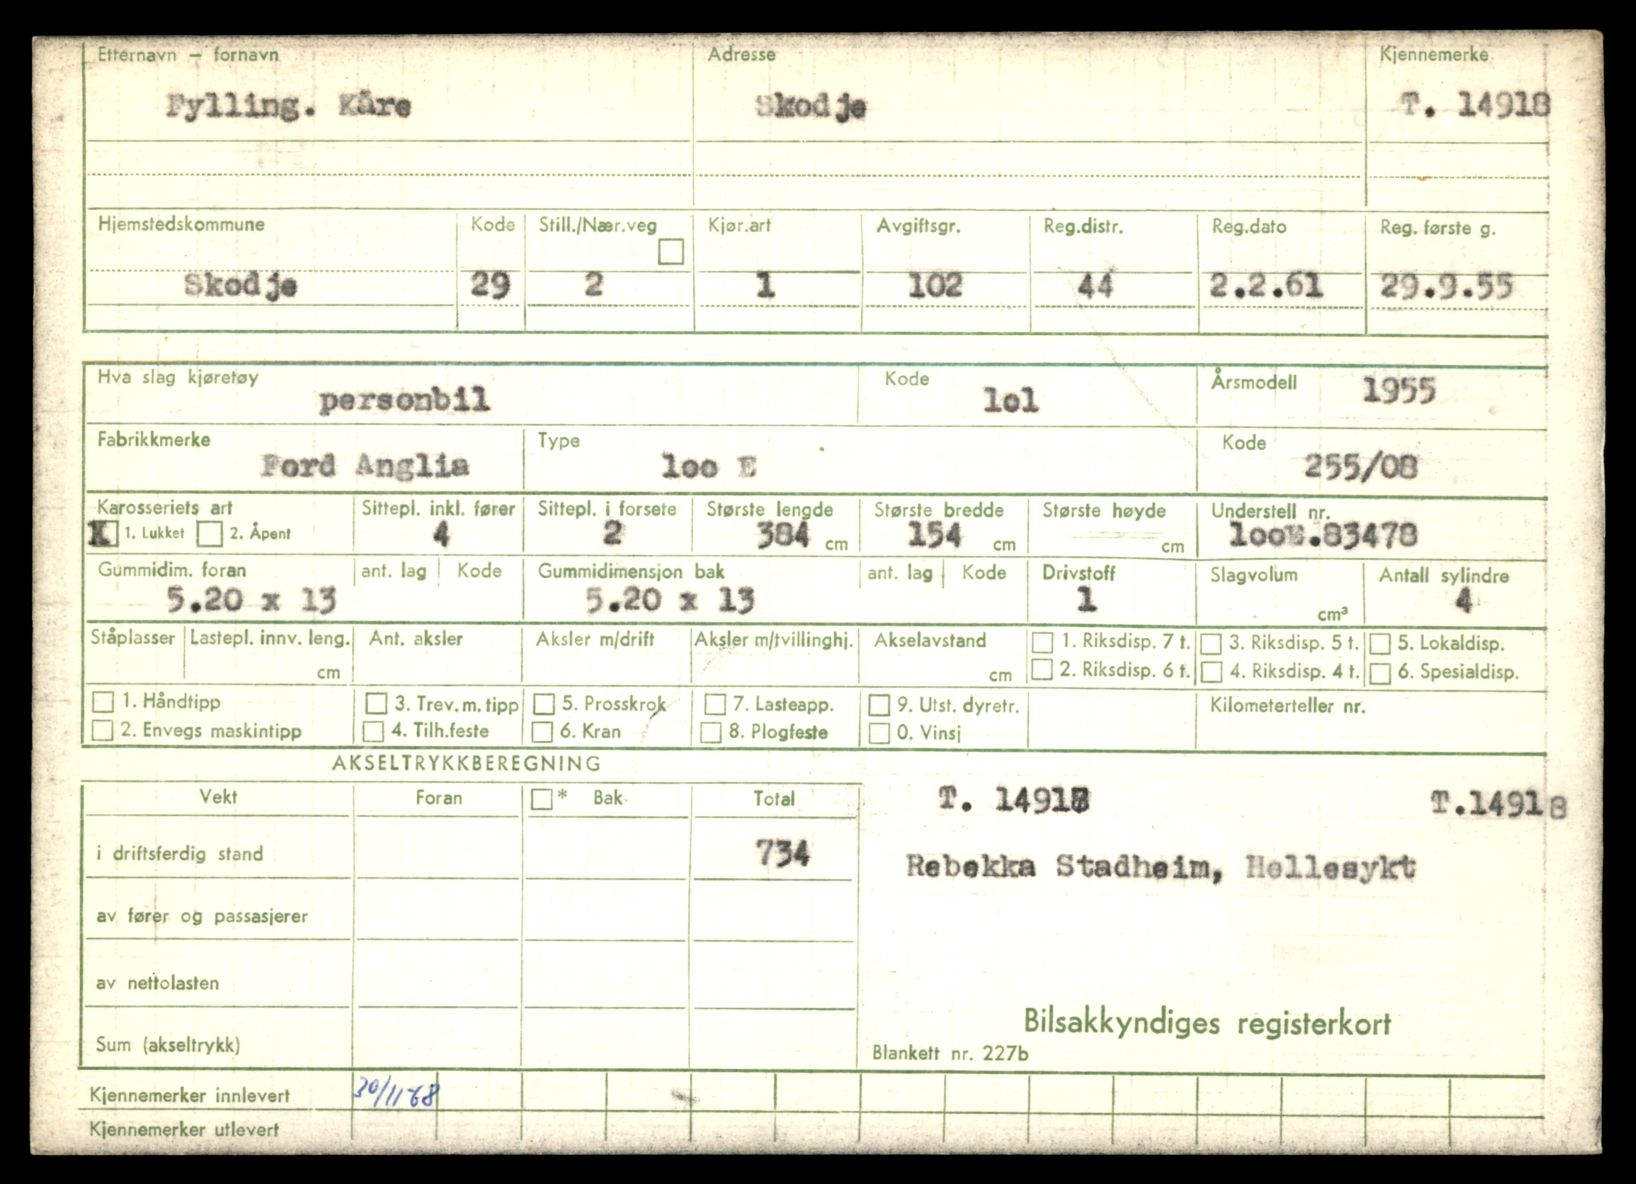 Etternavn – fornavn Adresse Kjennemerke
Fylling. Kåre Skodje T. 14918
Hjemstedskommune Kode Still./Nær.veg Kjør.art Avgiftsgr. Reg.distr. Reg.dato Reg. første g.
Skodje 29 2 1 102 44 2.2.61 29.9.55
Hva slag kjøretøy Kode Årsmodell
personbil lol 1955
Fabrikkmerke Type Kode
Ford Anglia loo E 255/08
Karosseriets art Sittepl. inkl. fører Sittepl. i forsete Største lengde Største bredde Største høyde Understell nr.
X 1. Lukket 2. Åpent 4 2 384 cm 154 cm cm looE.83478
Gummidim. foran ant. lag Kode Gummidimensjon bak ant. lag Kode Drivstoff Slagvolum Antall sylindre
5.20 x 13 5.20 x 13 1 cm³ 4
Ståplasser Lastepl. innv. leng. Ant. aksler Aksler m/drift Aksler m/tvillinghj. Akselavstand 1. Riksdisp. 7 t. 3. Riksdisp. 5 t. 5. Lokaldisp.
cm cm 2. Riksdisp. 6 t. 4. Riksdisp. 4 t. 6. Spesialdisp.
1. Håndtipp 3. Trev.m.tipp 5. Prosskrok 7. Lasteapp. 9. Utst. dyretr. Kilometerteller nr.
2. Envegs maskintipp 4. Tilh.feste 6. Kran 8. Plogfeste 0. Vinsj
AKSELTRYKKBEREGNING
Vekt Foran * Bak Total T. 14918 T.14918
i driftsferdig stand 734
Rebekka Stadheim, Hellesykt
av fører og passasjerer
av nettolasten
Bilsakkyndiges registerkort
Sum (akseltrykk) Blankett nr. 227b
Kjennemerker innlevert 30/11 68
Kjennemerker utlevert